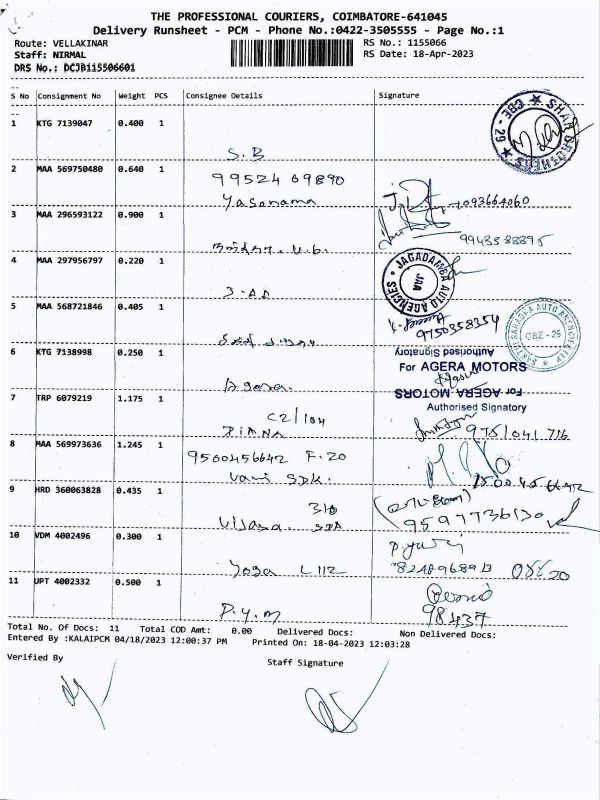 THE PROFESSIONAL COURIERS, COIMBATORE-641045
Delivery Runsheet - PCM - Phone No.:0422-3505555 - Page No.:1
Route: VELLAKINAR
RS No.: 1155066
Staff: NIRMAL
RS Date: 18-Apr-2023
DRS No.: DCJB115506601
S No Consignment No Weight PCS Consignee Details Signature
1 KTG 7139047 0.400 1
S.B
CBE - 29
2 MAA 569750480 0.640 1
99524 69890
Yasanama
7093664060
3 MAA 296593122 0.900 1
4 MAA 297956797 0.220 1
J-AD
JAGADAMBA AUTO AGENCIES
JAA
5 MAA 568721846 0.405 1
9750358354
SAKTHI SARADHA AUTO AGENCIES LLP
CBE - 29
6 KTG 7138998 0.250 1
Agera.
Authorised Signatory
For AGERA MOTORS
7 TRP 6079219 1.175 1
C2/104
DIANA
For AGERA MOTORS
Authorised Signatory
8 MAA 569973636 1.245 1
9500456642 F.20
Vani SDK.
9751041 716
9 HRD 360063828 0.435 1
310
Vijaya.
9597736130
10 VDM 4002496 0.300 1
Yoga L112
11 UPT 4002332 0.500 1
P.Y.M
98437
Total No. Of Docs: 11 Total COD Amt: 0.00 Delivered Docs: Non Delivered Docs:
Entered By :KALAIPCM 04/18/2023 12:00:37 PM Printed On: 18-04-2023 12:03:28
Verified By
Staff Signature